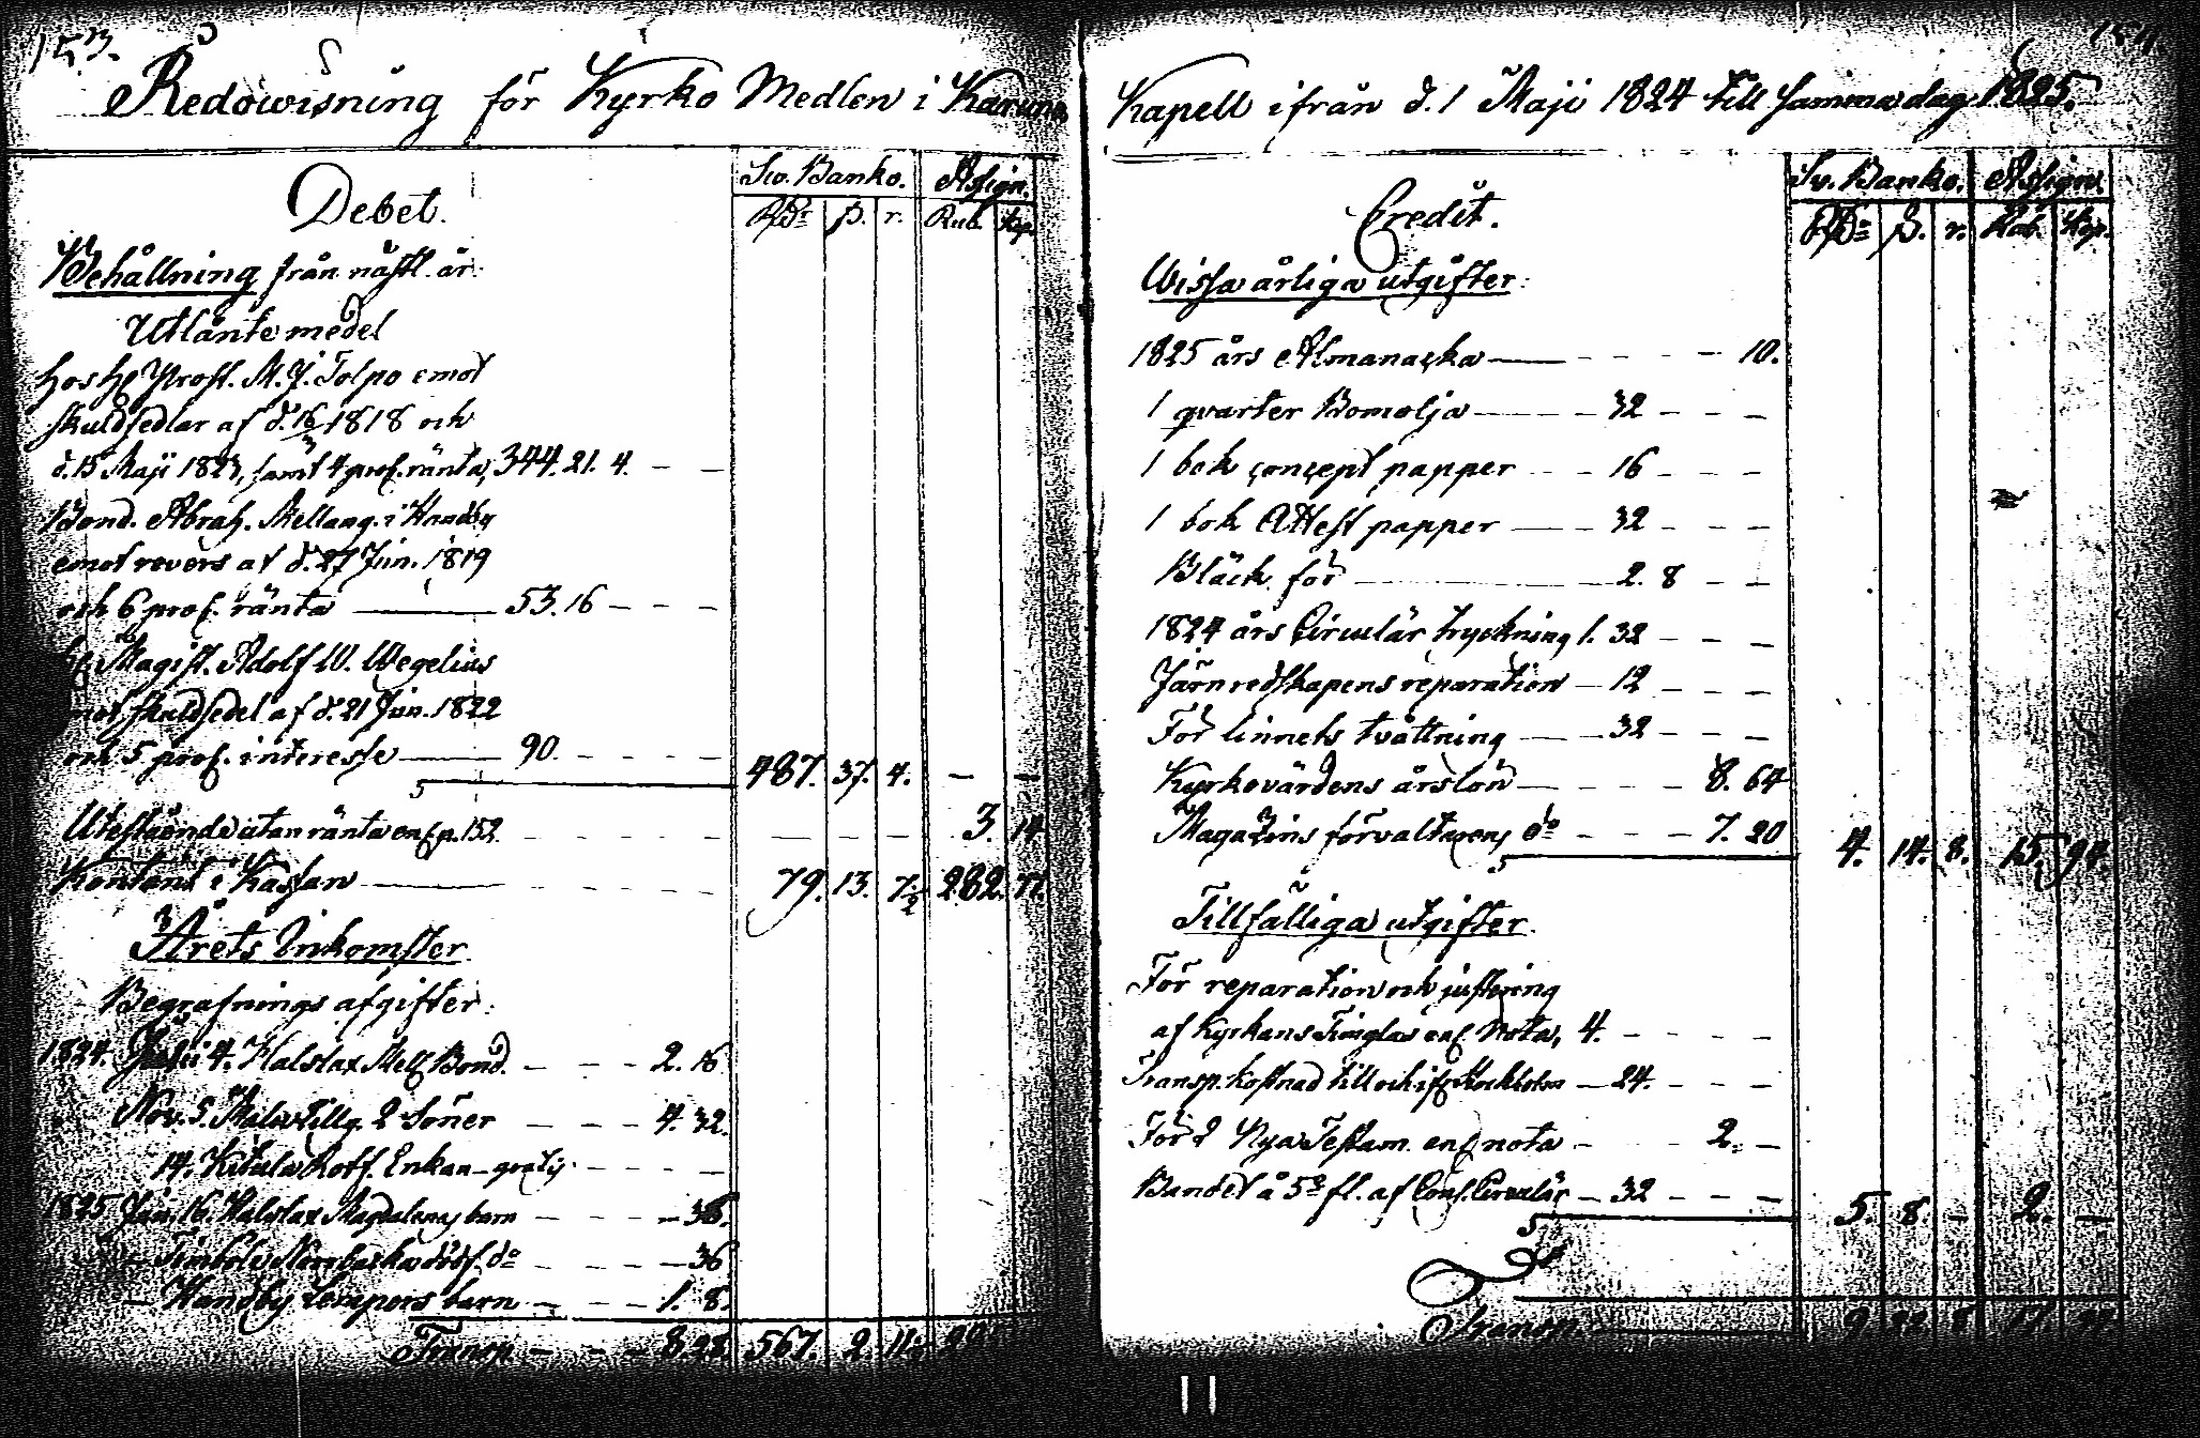 153.
Redowisning för Kyrko Medlen i Karuna
Debet.
Sw. Banko. Assign.
RDr ß. r. Rub. Kop.
Behållning från nästl. år.
Utlånte medel
Hos H. Prost. M. J. Tolpo emot
skuldsedlar af d. 16/3 1818 och
d. 15 Maji 1823, samt 4 proC. ränta, 344. 21. 4. – –
Bond. Abrah. Mellang. i Handby
emot revers af d. 27 Jun. 1819
och 6 proC. ränta — 53. 16 – – –
H. Magist. Adolf W. Wegelius
emot skuldsedel af d. 21 Jun. 1822
och 5 proC. interesse — 90. – – – –
487. 37. 4. – –
Utestående utan ränta enl. p. 152. – – – – – – 3. 14
Kontant i Kassan — – – – – 79. 13. 7½ 282. 77.
Årets Inkomster.
Begrafnings afgifter.
1824. Julii 4. Halslax Mell. Bond. – – – 2. 16
Nov. 5. Mälartillg. 2 Söner – – – 4. 32.
14. Kitula Rotf. Enkan – gratis. – – – –
1825 Jan. 16. Halslax Magdalenas barn – – – 36.
– Norrbacka d:o – – – 36
– Handby barn – – – 1. 8.
Transp. – – – 8. 28 567. 2. 11½
Kapell ifrån d. 1 Maji 1824 till samma dag 1825.
Credit.
Sv. Banko. Assign.
RDr ß. r. Rub. Kop.
Wissa årliga utgifter.
1825 års Almanacka — – – – – 10.
1 qvarter Bomolja – – – – 32 – – –
1 bok concept papper – – 16 – – –
1 bok Attest papper — – 32 – – –
Bläck för — 2. 8 – –
1824 års Circulär tryckning 1. 32 – – –
Järnredskapens reparation – 12 – – –
För linnets tvättning — – 32 – – –
Kyrkovärdens årslön — – – – 8. 64
Magazins förvaltarens d:o – – – 7. 20
4. 14. 8. 15. 94.
Tillfälliga utgifter.
För reparation och justering
af Kyrkans Timglas enl. Nota, 4. – – – –
Transp. kostnad till och ifr. Stockholm – 24. – – –
För 2 Nya Testam. enl. nota – – – 2. –
Bandet å 5:e fl. af Cons. Circulär – 32 – – –
5. 8. – 2. –
Transp.